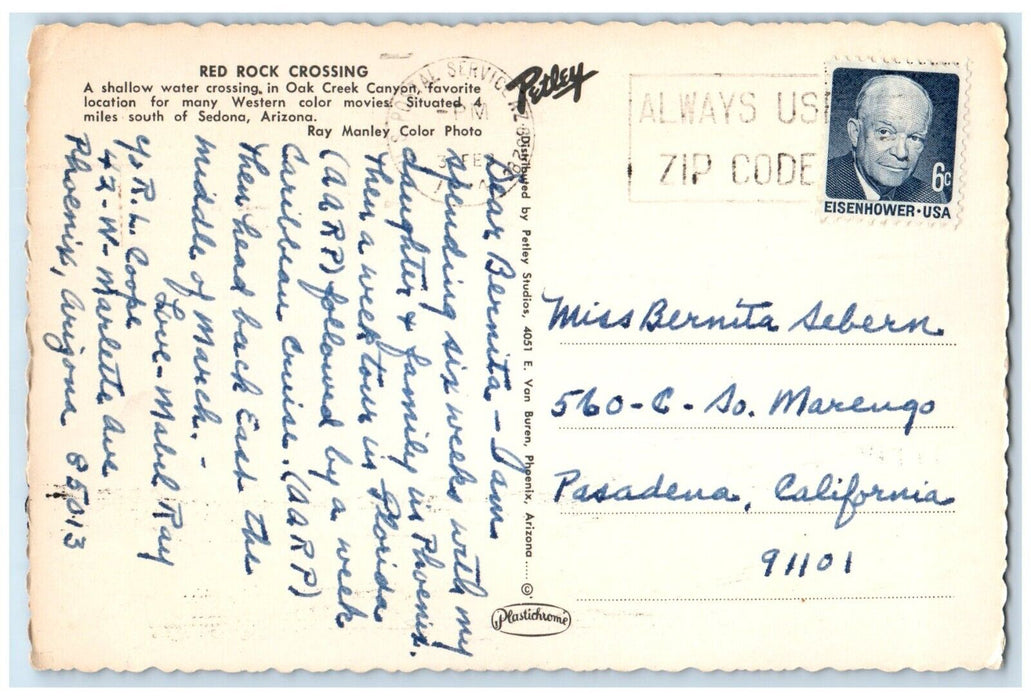 RED ROCK CROSSING
A shallow water crossing, in Oak Creek Canyon, favorite
location for many Western color movies. Situated 4
miles south of Sedona, Arizona.
Ray Manley Color Photo
Petley
POSTAL SERVICE
PM
ALWAYS USE
ZIP CODE
6c
EISENHOWER·USA
Dear Bernita - I am
spending six weeks with my
daughter & family in Phoenix.
Then a week tour in Florida
(AARP) followed by a week
Caribbean Cruise. (AARP)
Then head back East the
middle of March. -
Love - Mabel Ray
c/o R. L. Coope
42 - W - Marlette Ave
Phoenix, Arizona 85013
Distributed by Petley Studios, 4051 E. Van Buren, Phoenix, Arizona ..... ©
Plastichrome
Miss Bernita Sebern
560 - C - So. Marengo
Pasadena, California
91101